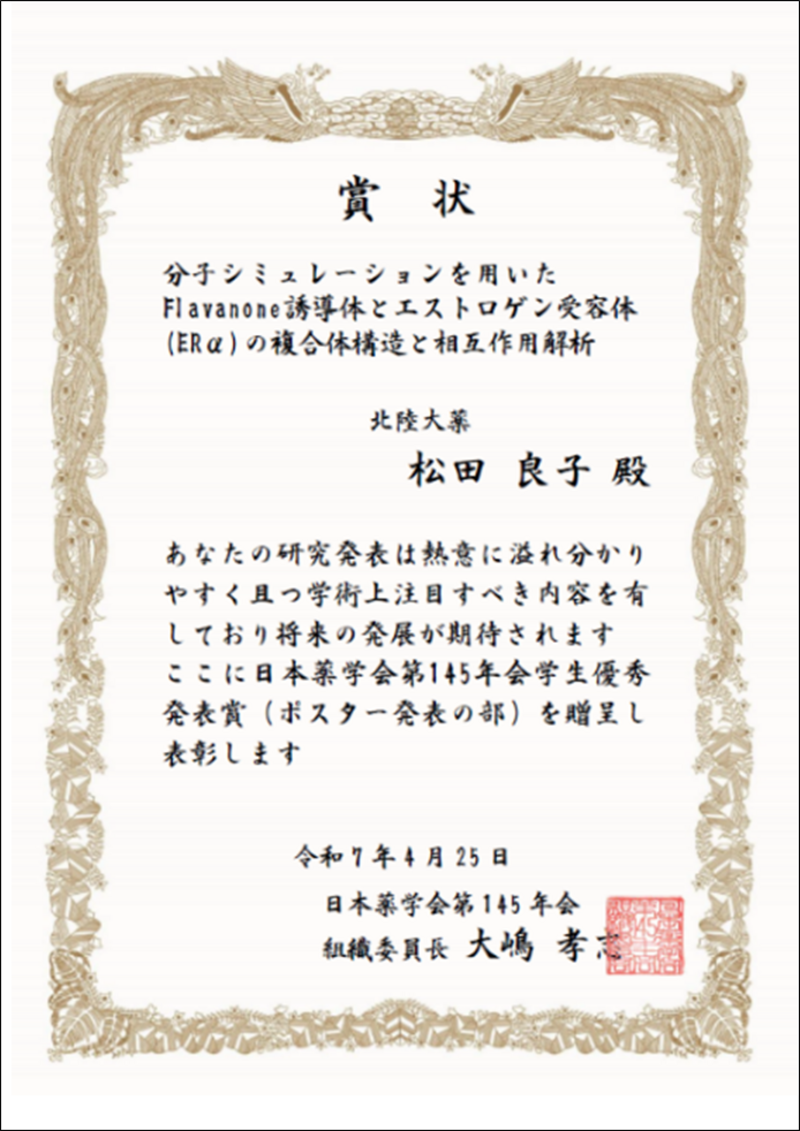 賞 状
分子シミュレーションを用いた
Flavanone誘導体とエストロゲン受容体
(ERα)の複合体構造と相互作用解析
北陸大薬
松田 良子 殿
あなたの研究発表は熱意に溢れ分かり
やすく且つ学術上注目すべき内容を有
しており将来の発展が期待されます
ここに日本薬学会第145年会学生優秀
発表賞（ポスター発表の部）を贈呈し
表彰します
令和7年4月25日
日本薬学会第145年会
組織委員長 大嶋 孝志